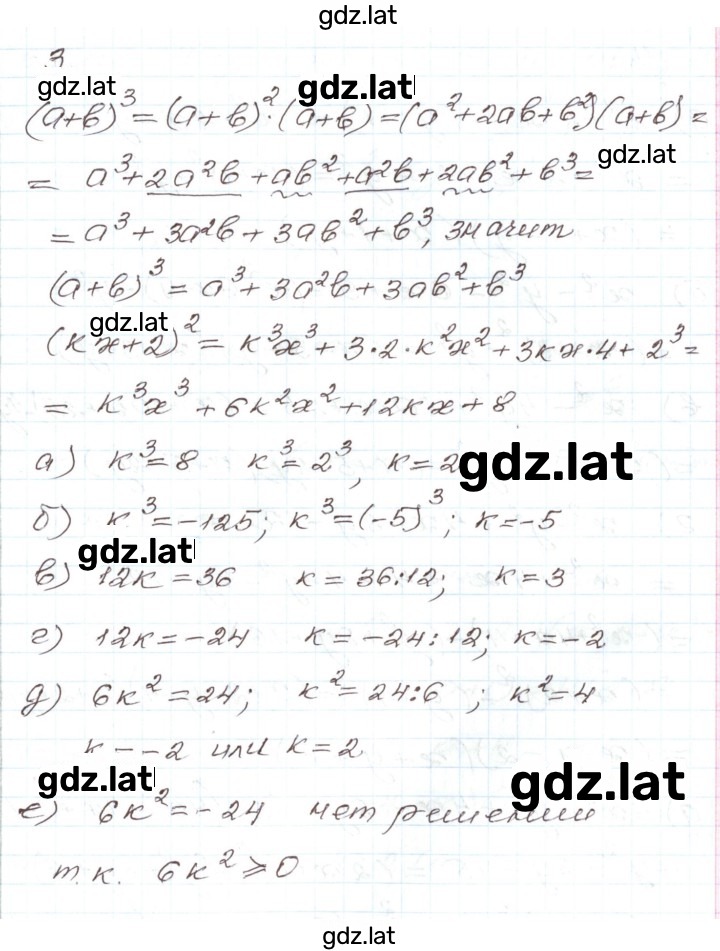 gdz.lat
3
gdz.lat gdz.lat
(a+b)³ = (a+b)²·(a+b) = (a²+2ab+b²)(a+b) =
gdz.lat
= a³ + 2a²b + ab² + a²b + 2ab² + b³ =
= a³ + 3a²b + 3ab² + b³, значит
(a+b)³ = a³ + 3a²b + 3ab² + b³
gdz.lat
(кx+2)² = к³x³ + 3·2·к²x² + 3кx·4 + 2³ =
= к³x³ + 6к²x² + 12кx + 8
а) к³=8 к³=2³, к=2
gdz.lat
б) к³=-125; к³=(-5)³; к=-5
gdz.lat
в) 12к=36 к=36:12; к=3
г) 12к=-24 к=-24:12; к=-2
д) 6к²=24; к²=24:6 ; к²=4
к=-2 или к=2
gdz.lat gdz.lat
е) 6к²=-24 нет решений
т.к. 6к²⩾0
gdz.lat